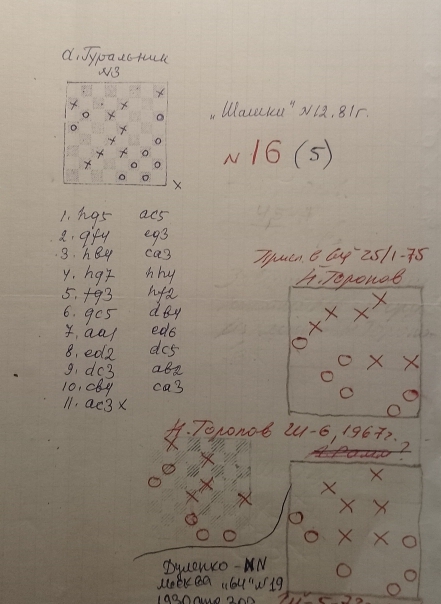 А. Гуральник
N3
„Шашки“ N12. 81г.
N 16 (5)
1. hg5 ac5
2. gf4 eg3
3. hb4 ca3
4. hg7 hh4
5. fg3 hf2
6. gc5 db4
7. aa1 ed6
8. ed2 dc5
9. dc3 ab2
10. cb4 ca3
11. ac3 x
x
Присл. в 25/I-75
Н. Торопов
Н. Торопов Ш-6, 1967г.
Дуленко - NN
Москва "64" N19